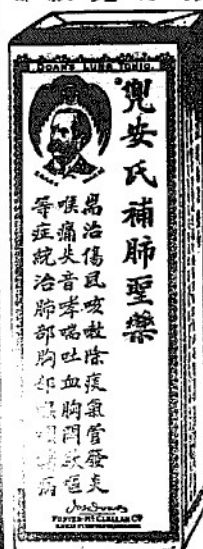 DOAN'S LUNG TONIC.
兜安氏補肺聖藥
耑治傷風咳嗽除痰氣管發炎
喉痛失音哮喘吐血胸悶
等症統治肺部胸部
FOSTER-McCLELLAN Co